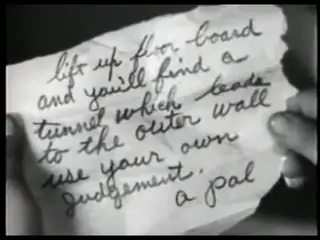 lift up floor board
and you'll find a
tunnel which leads
to the outer wall
use your own
judgement.
a pal